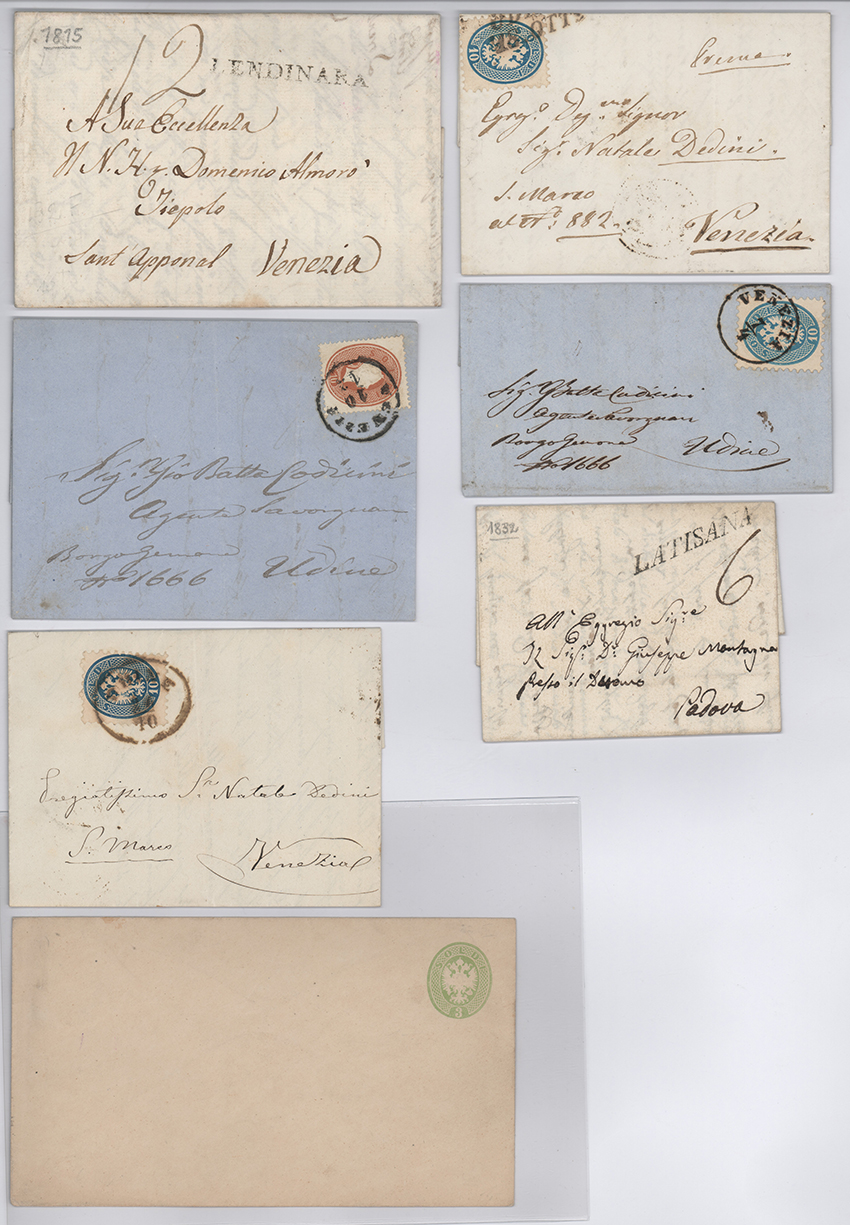 1815
12
LENDINARA
A Sua Eccellenza
Il N. H. r. Domenico Almorò
Tiepolo
Sant'Apponal Venezia
10 SOLDI
OTT
Preme
Egreg.o Deg.mo Signor
Sig.r Natale Dedini.
S. Marco
al N.o 882.
Venezia.
VENEZIA
10 SOLDI
Sig. Gio Batta Codicini
Agente Savorgnan
Borgo Gemona
No 1666 Udine
VENEZIA
Sig. Gio Batta Codicini
Agente Savorgnan
Borgo Gemona
No 1666 Udine
1832
LATISANA
6
All' Eggregio Sig.re
Il Sig.r D.r Giuseppe Montagna
presso il Duomo
Padova
10 SOLDI
10
Egregiatissimo S.r Natale Dedini
S. Marco
Venezia
SOLDI
3